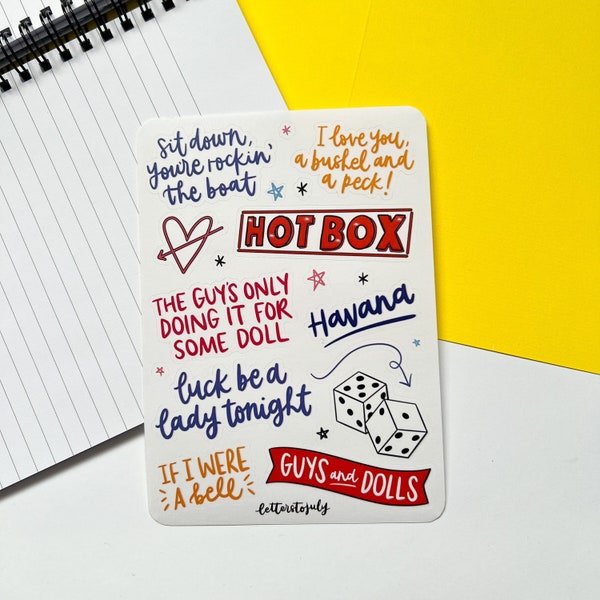 Sit down,
you're rockin'
the boat
I love you,
a bushel and
a peck!
HOT BOX
THE GUY'S ONLY
DOING IT FOR
SOME DOLL
Havana
luck be a
lady tonight
IF I WERE
A bell
GUYS and DOLLS
letterstojuly